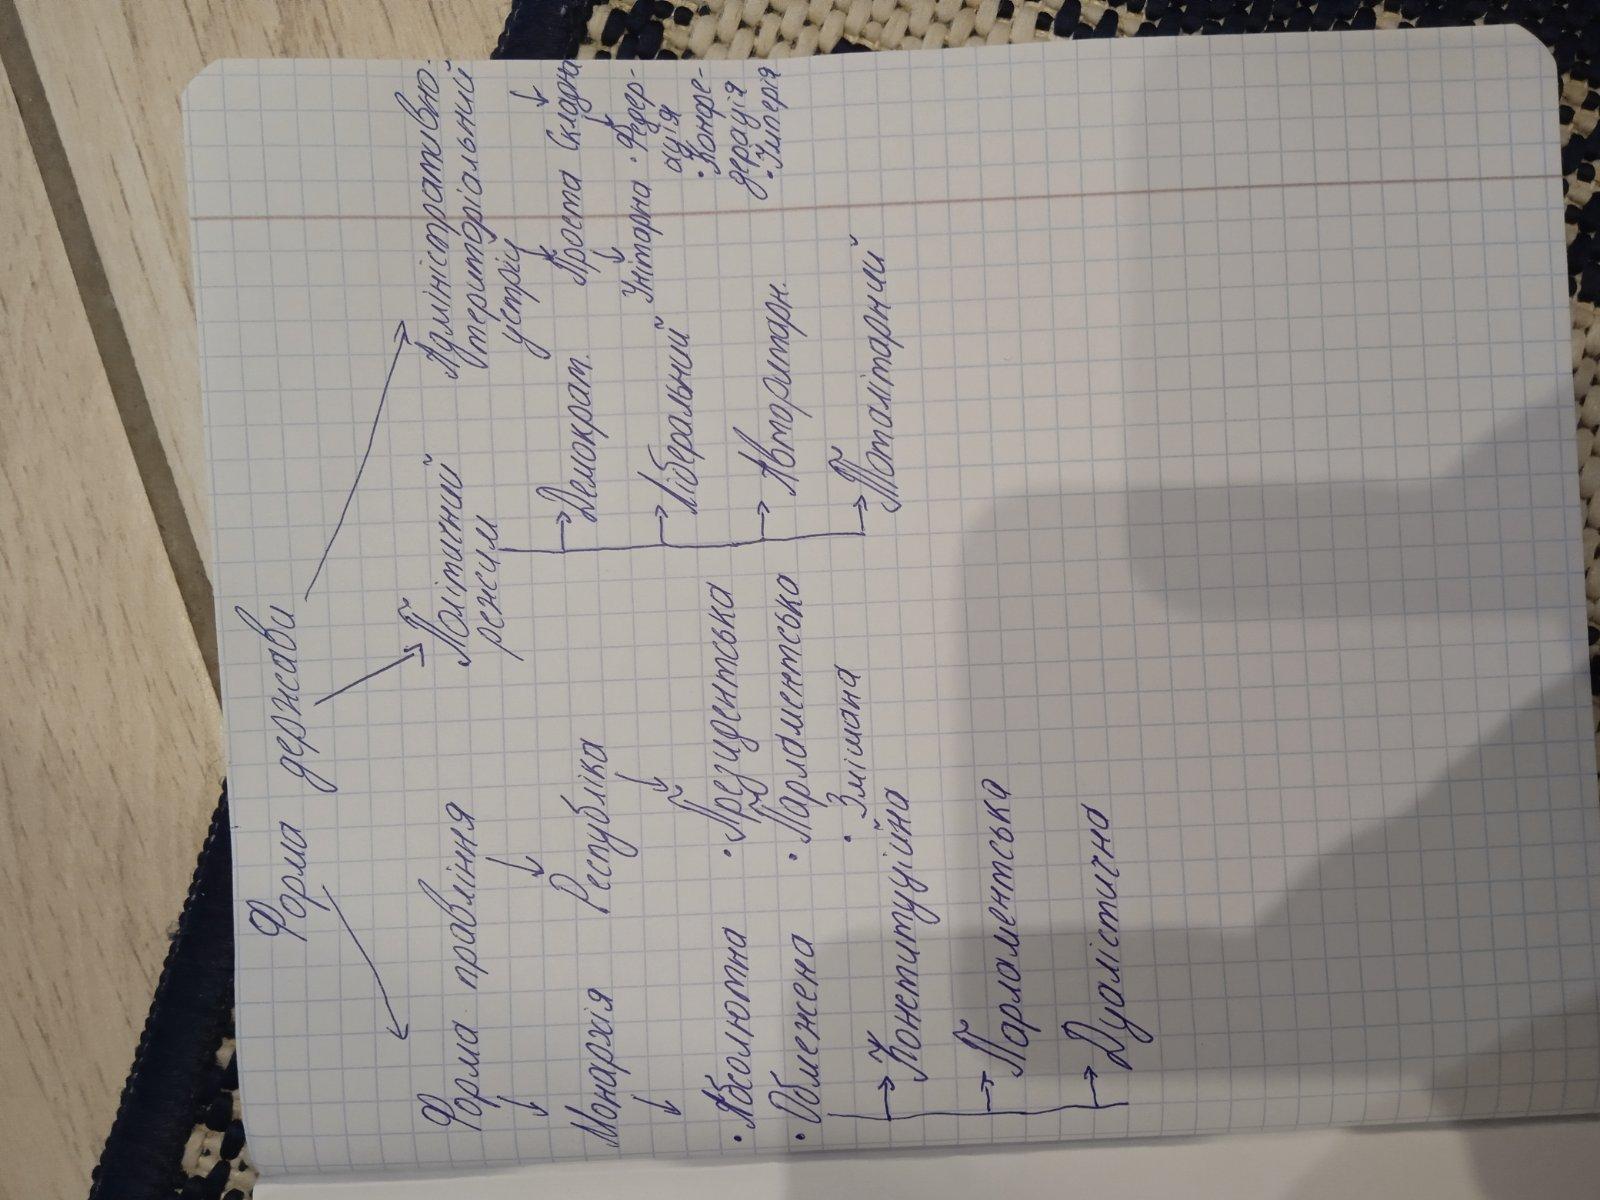 Форма держави
Форма правління
Монархія
• Абсолютна
• Обмежена
Конституційна
Парламентська
Дуалістична
Республіка
• Президентська
• Парламентська
• Змішана
Політичний
режим
Демократ.
Ліберальний
Авторитарн.
Тоталітарний
Адміністративно-
територіальний
устрій
Проста
Унітарна
Складна
• Федер-
ація
• Конфе-
дерація
• Імперія